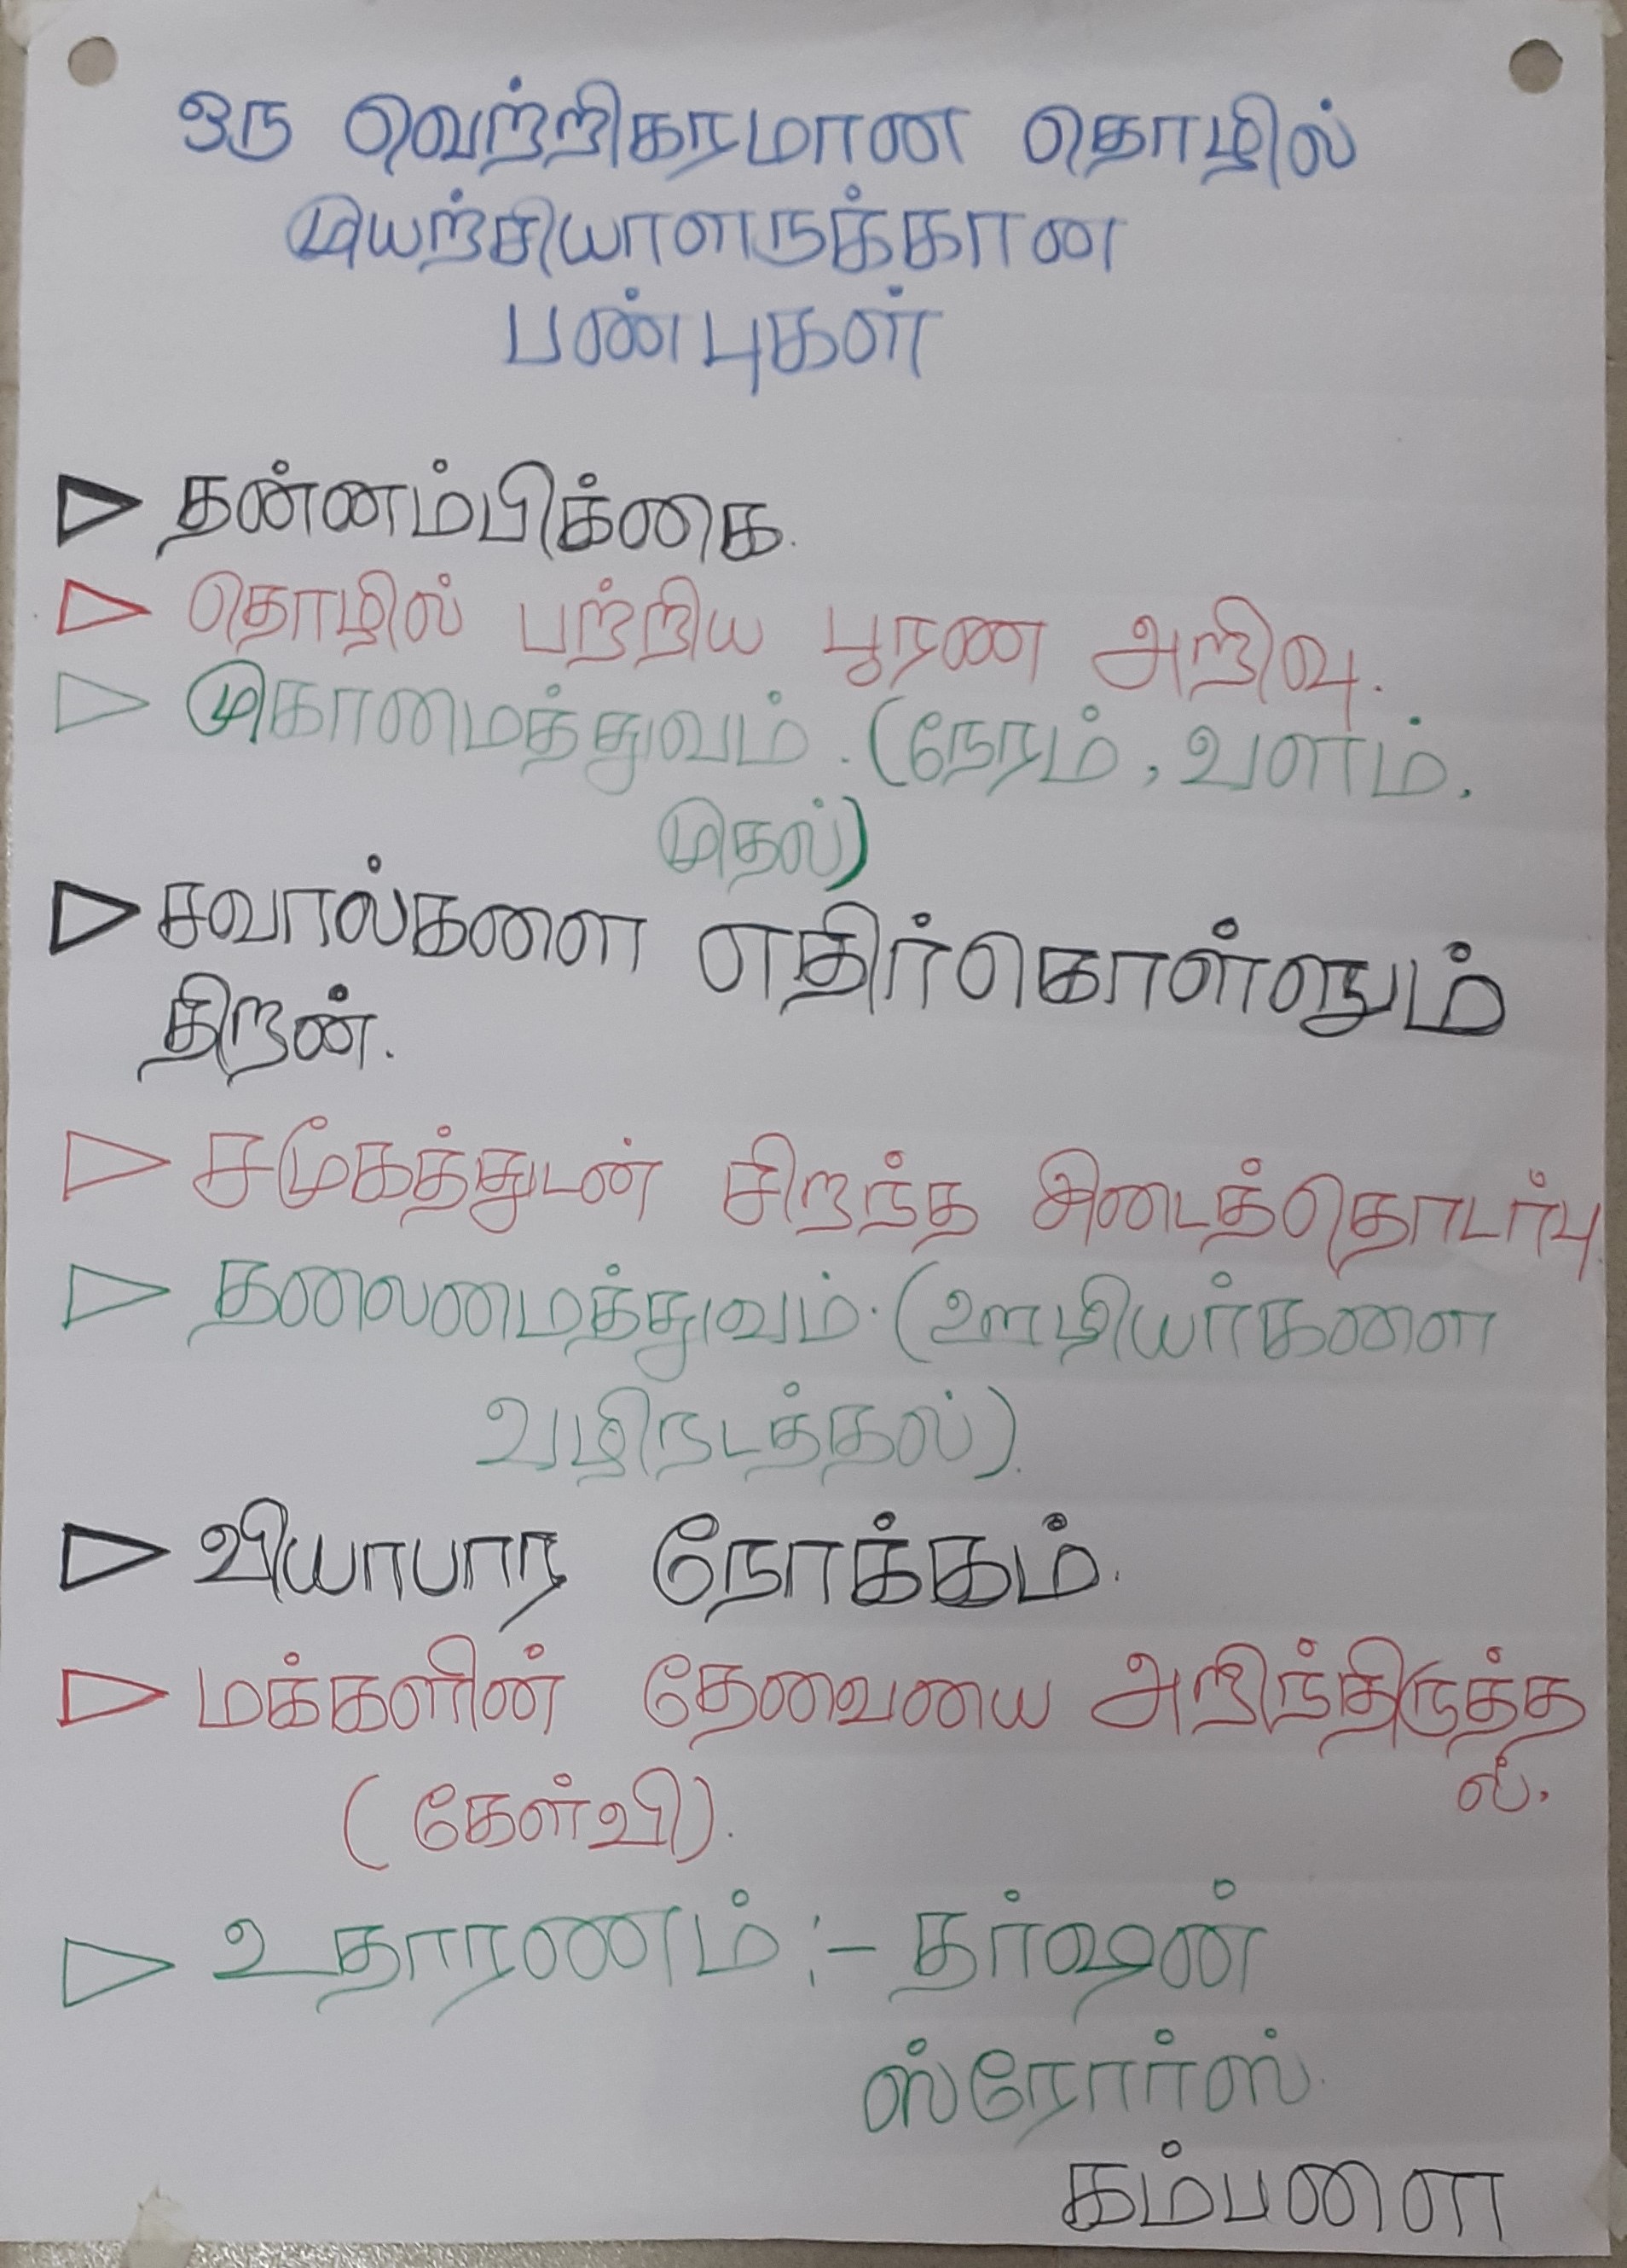 ஒரு வெற்றிகரமான தொழில்
முயற்சியாளருக்கான
பண்புகள்
தன்னம்பிக்கை.
தொழில் பற்றிய பூரண அறிவு.
முகாமைத்துவம். (நேரம், வளம்,
முதல்)
சவால்களை எதிர்கொள்ளும்
திறன்.
சமூகத்துடன் சிறந்த இடைத்தொடர்பு.
தலைமைத்துவம். (ஊழியர்களை
வழிநடத்தல்).
வியாபார நோக்கம்.
மக்களின் தேவையை அறிந்திருத்த
ல்.
(கேள்வி).
உதாரணம் :- தர்ஷன்
ஸ்ரோர்ஸ்.
கம்பளை